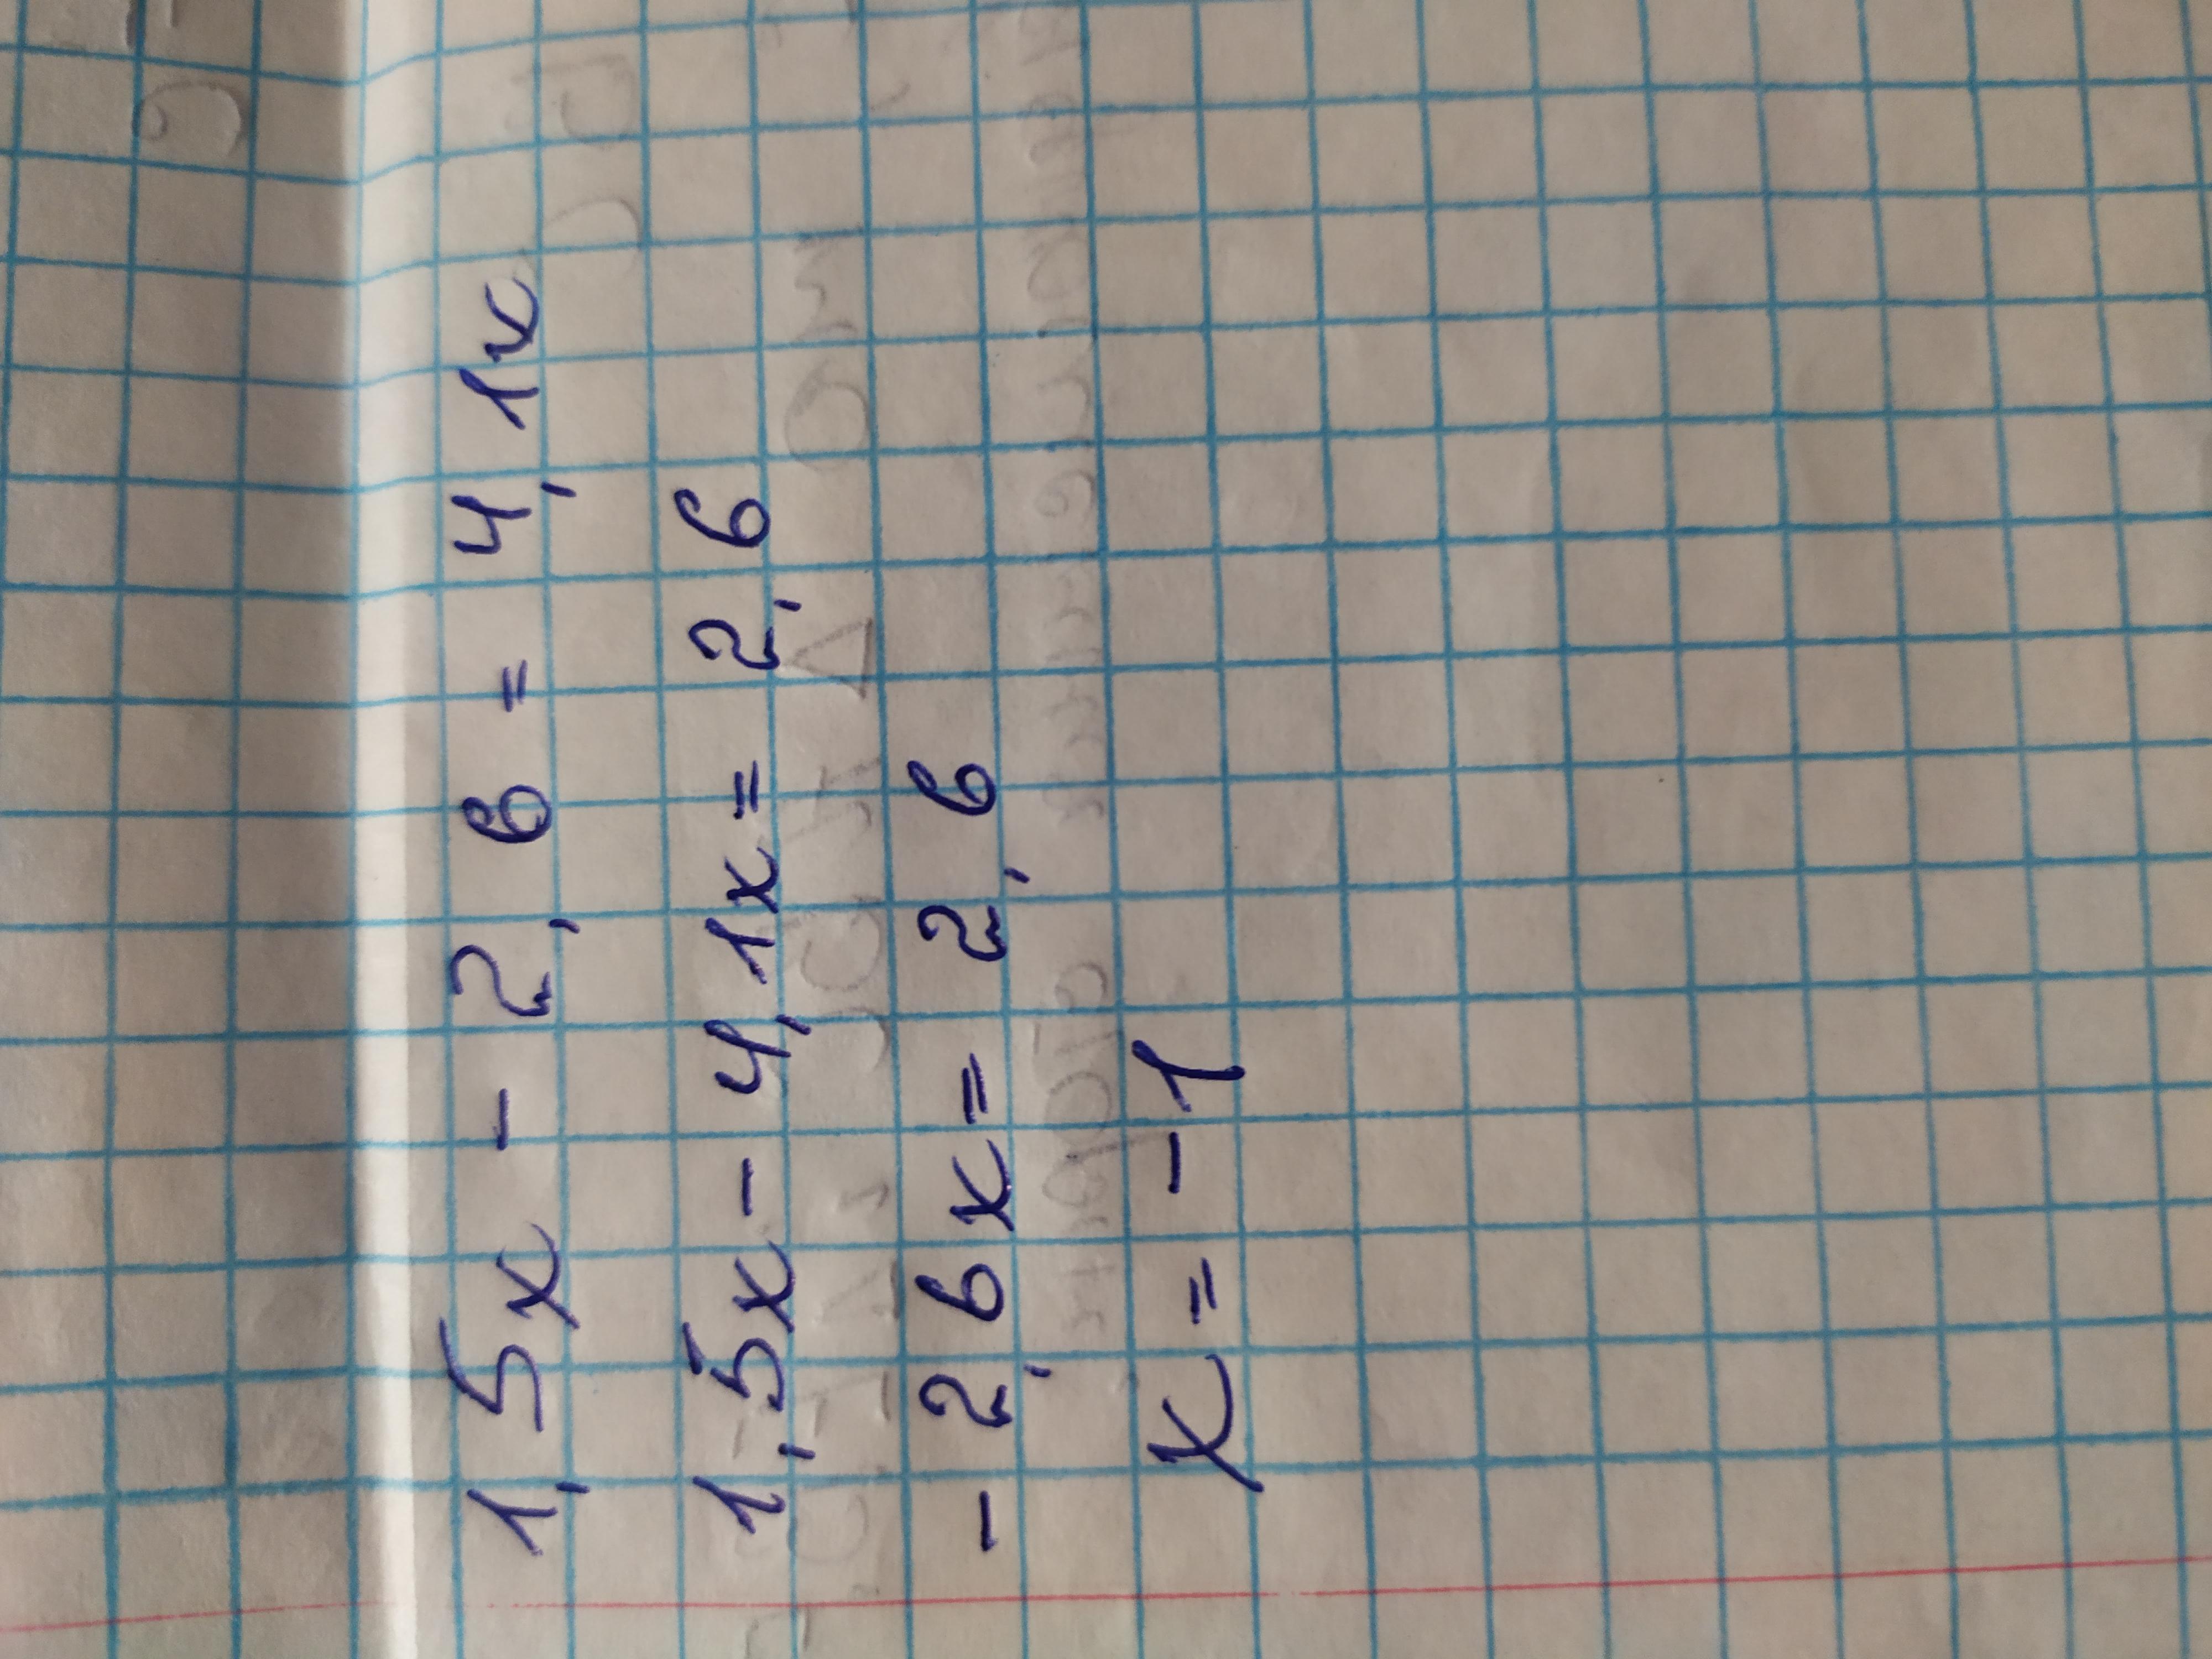 1,5x - 2,6 = 4,1x
1,5x - 4,1x = 2,6
- 2,6x = 2,6
x = -1